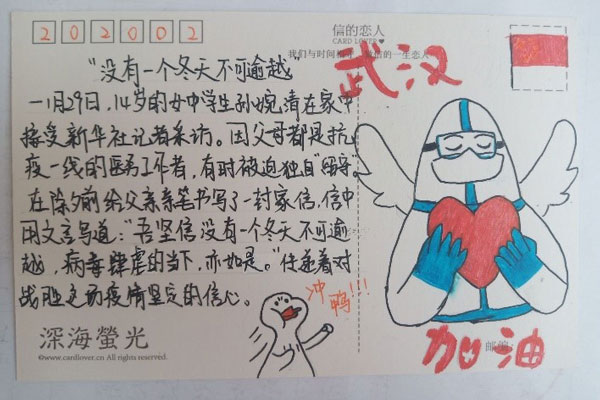 202002
信的恋人
CARD LOVER♥
我们与时间 一生恋人
武汉
"没有一个冬天不可逾越"
一1月29日,14岁的女中学生孙婉清在家中
接受新华社记者采访。因父母都是抗
疫一线的医务工作者,有时被迫独自"留守"。
在除夕前给父亲亲笔书写了一封家信,信中
用文言写道:"吾坚信没有一个冬天不可逾
越,病毒肆虐的当下,亦如是。"传递着对
战胜这场疫情坚定的信心。
冲鸭!!!
深海螢光
©www.cardlover.cn All rights reserved.
加油
邮编: